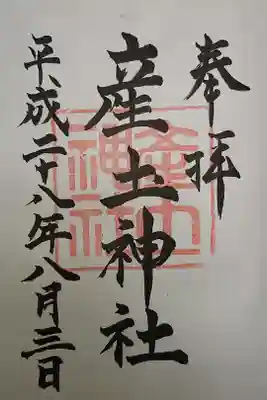 奉拝
産土神社
平成二十八年八月三日